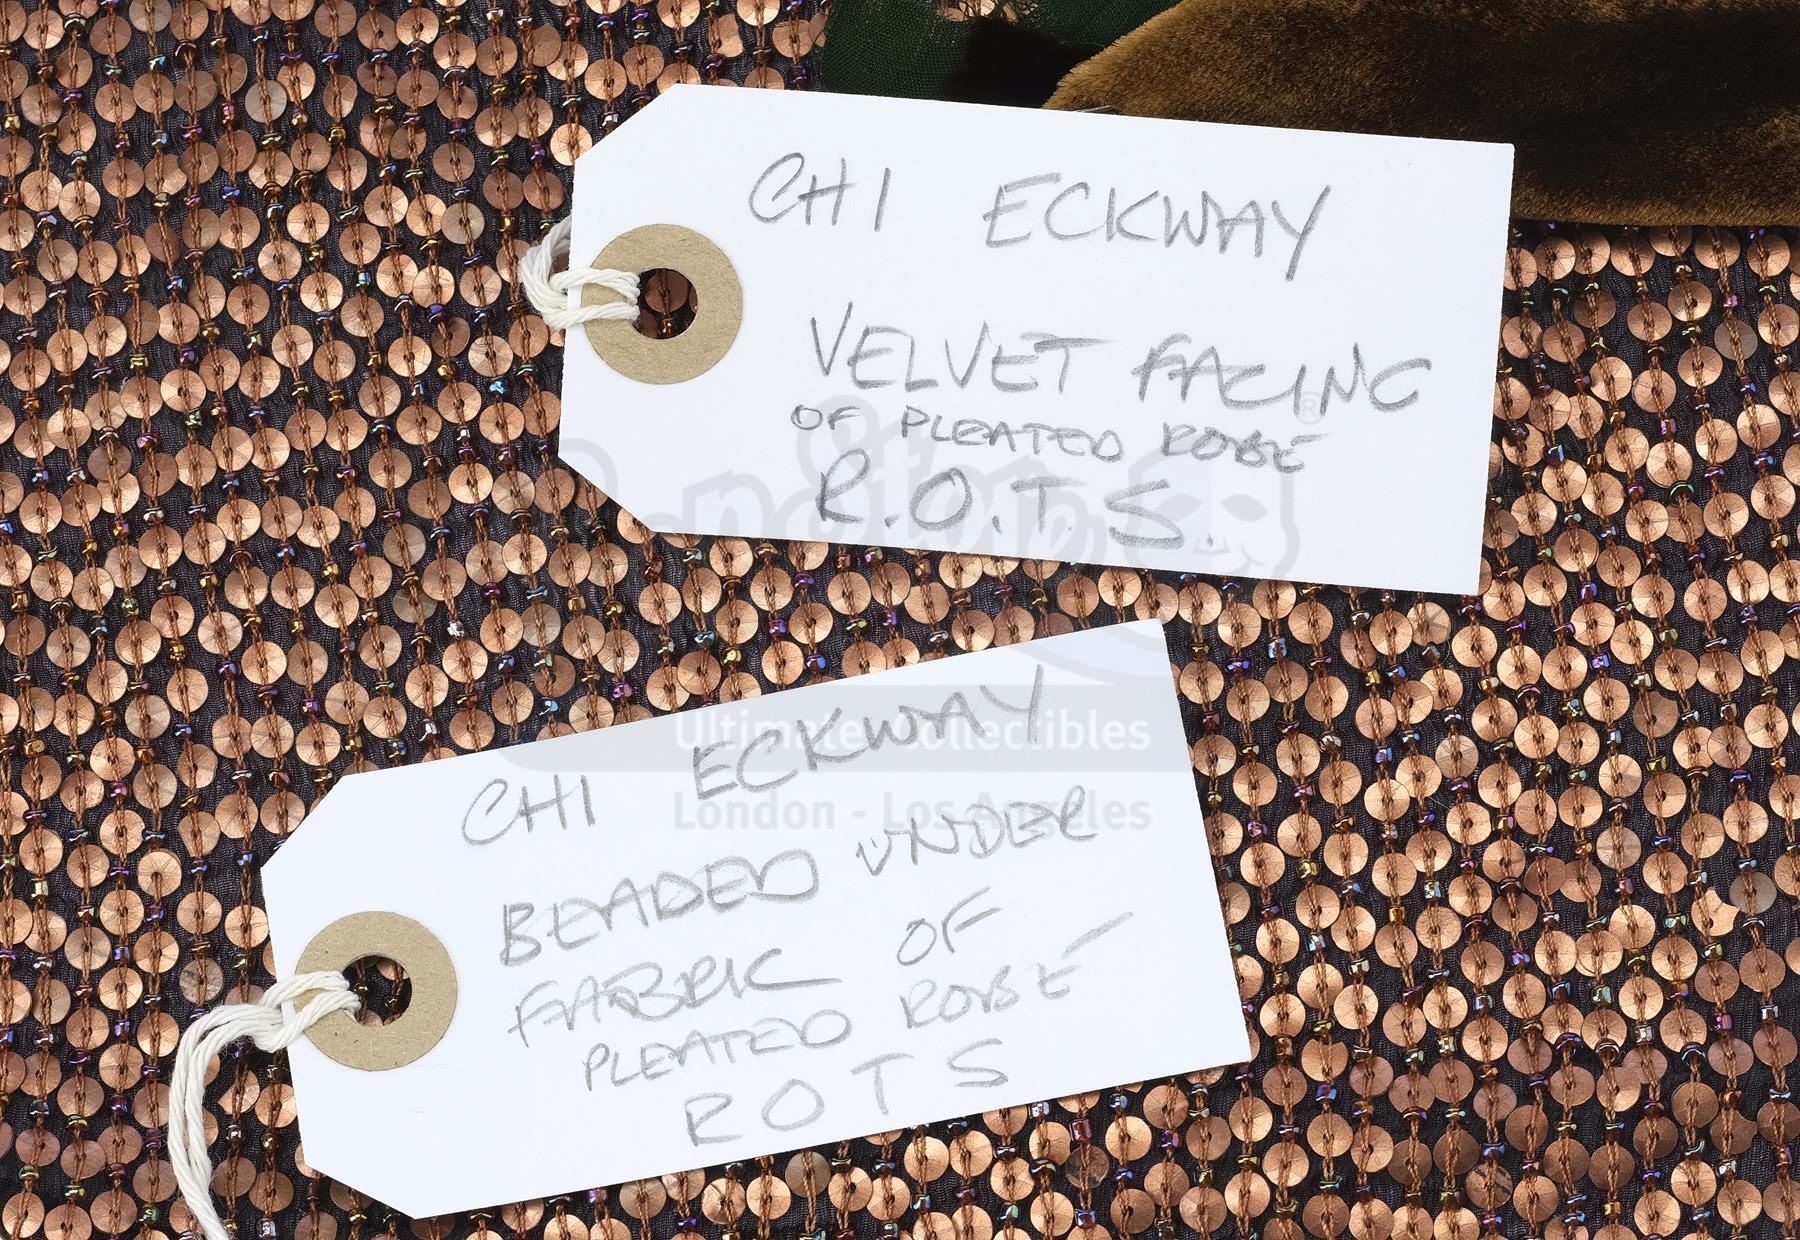 CHI ECKWAY
VELVET FACING
OF PLEATED ROBE
R.O.T.S.
CHI ECKWAY
BEADED UNDER
FABRIC OF
PLEATED ROBE
ROTS
Propstore
®
Ultimate Collectibles
London - Los Angeles